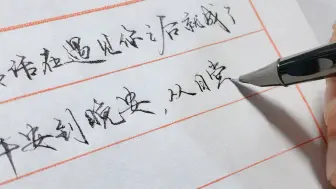 话在遇见你之后就成了
午安到晚安，从日常